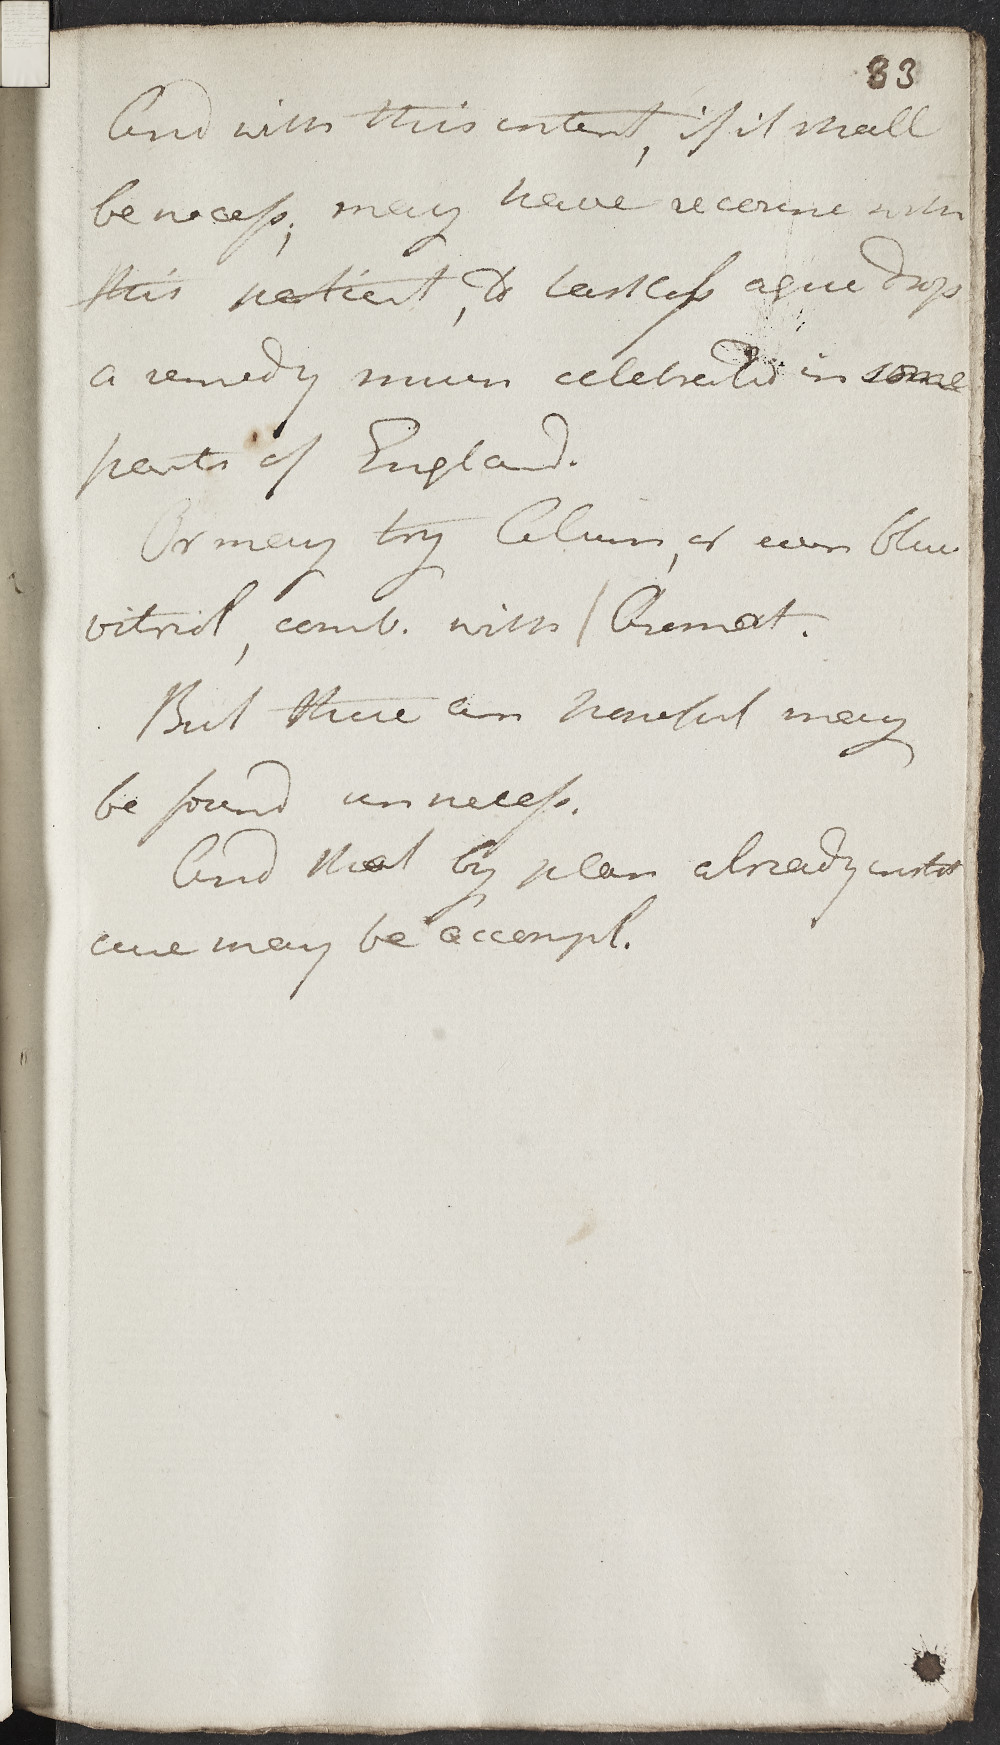 83
And with this intent, if it shall
be necess; may have recourse with
this patient, to tastless ague drop
a remedy much celebrated in some
parts of England.
Or may try Alum, or even blue
vitriol, comb. with / Aromat.
But these am hopeful may
be found unnecess.
And that by plan already
cure may be accompl.